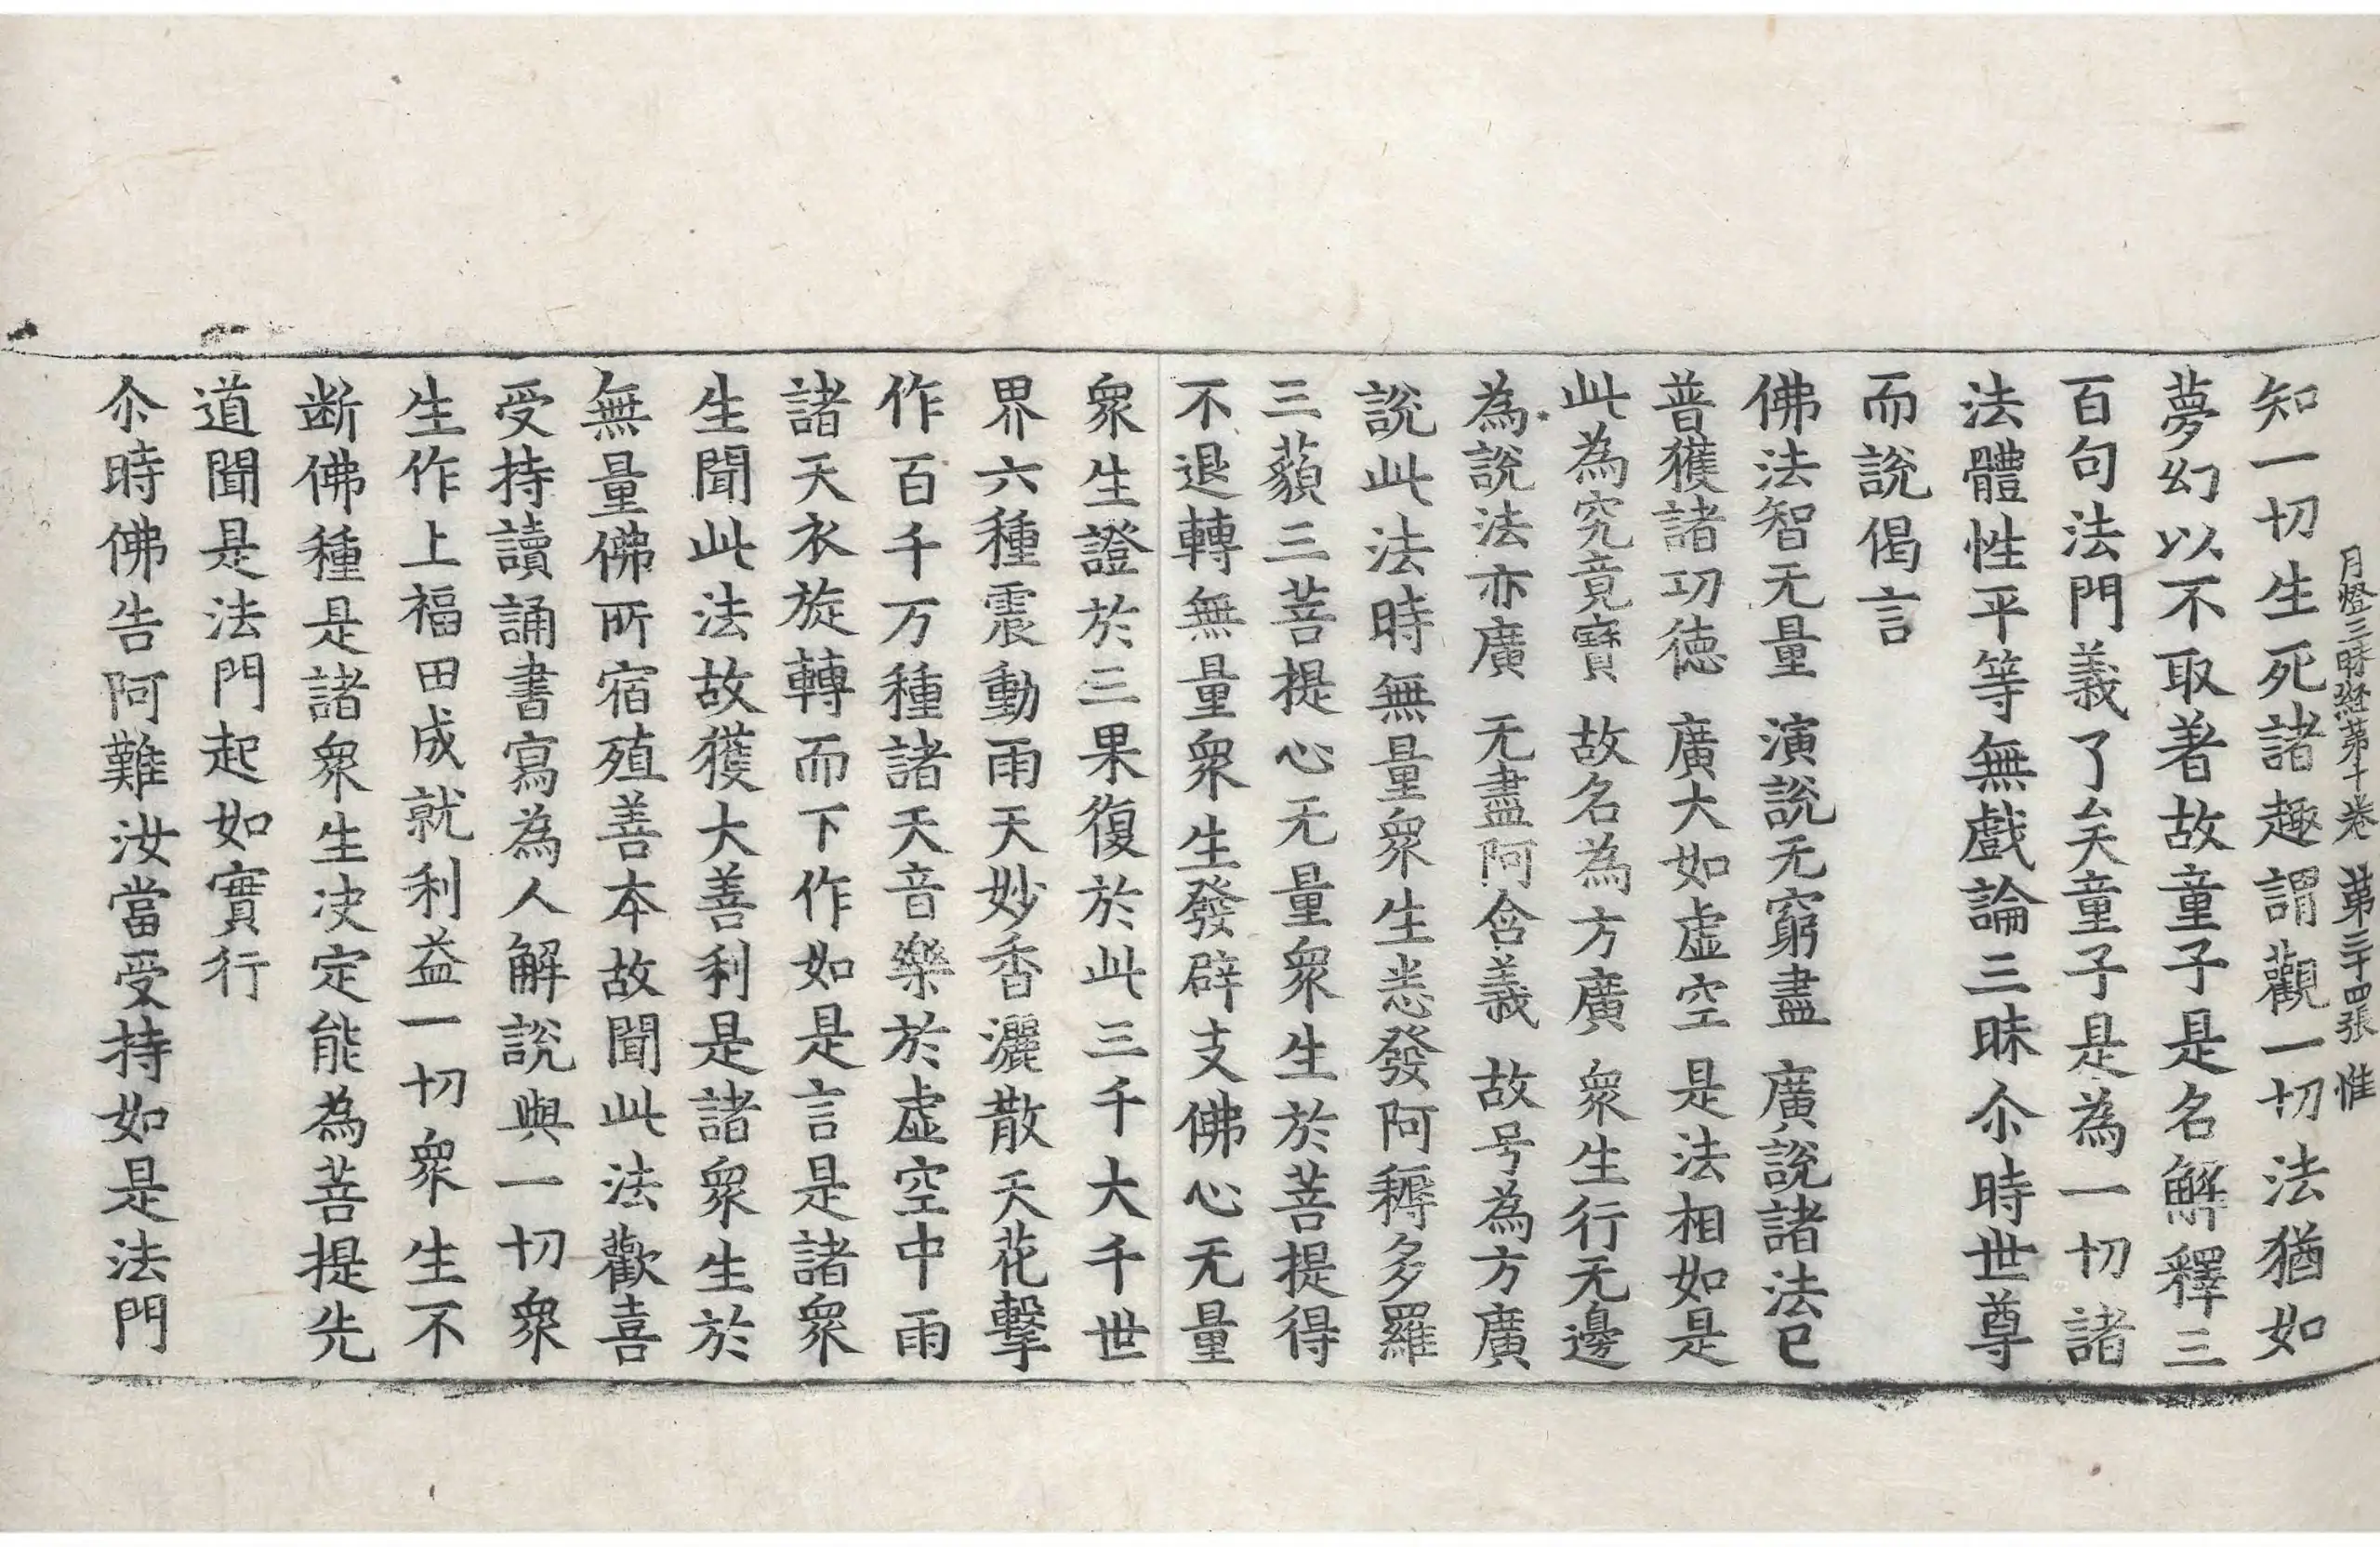 月燈三昧經第十卷 第三十四張 惟
知一切生死諸趣謂觀一切法猶如
夢幻以不取著故童子是名解釋三
百句法門義了矣童子是為一切諸
法體性平等無戲論三昧尒時世尊
而說偈言
佛法智无量 演說无窮盡 廣說諸法已
普獲諸功德 廣大如虛空 是法相如是
此為究竟寶 故名為方廣 衆生行无邊
為說法亦廣 无盡阿含義 故号為方廣
說此法時無量衆生悉發阿耨多羅
三藐三菩提心无量衆生於菩提得
不退轉無量衆生發辟支佛心无量
衆生證於三果復於此三千大千世
界六種震動雨天妙香灑散天花擊
作百千万種諸天音樂於虛空中雨
諸天衣旋轉而下作如是言是諸衆
生聞此法故獲大善利是諸衆生於
無量佛所宿殖善本故聞此法歡喜
受持讀誦書寫為人解說與一切衆
生作上福田成就利益一切衆生不
断佛種是諸衆生决定能為菩提先
道聞是法門起如實行
尒時佛告阿難汝當受持如是法門